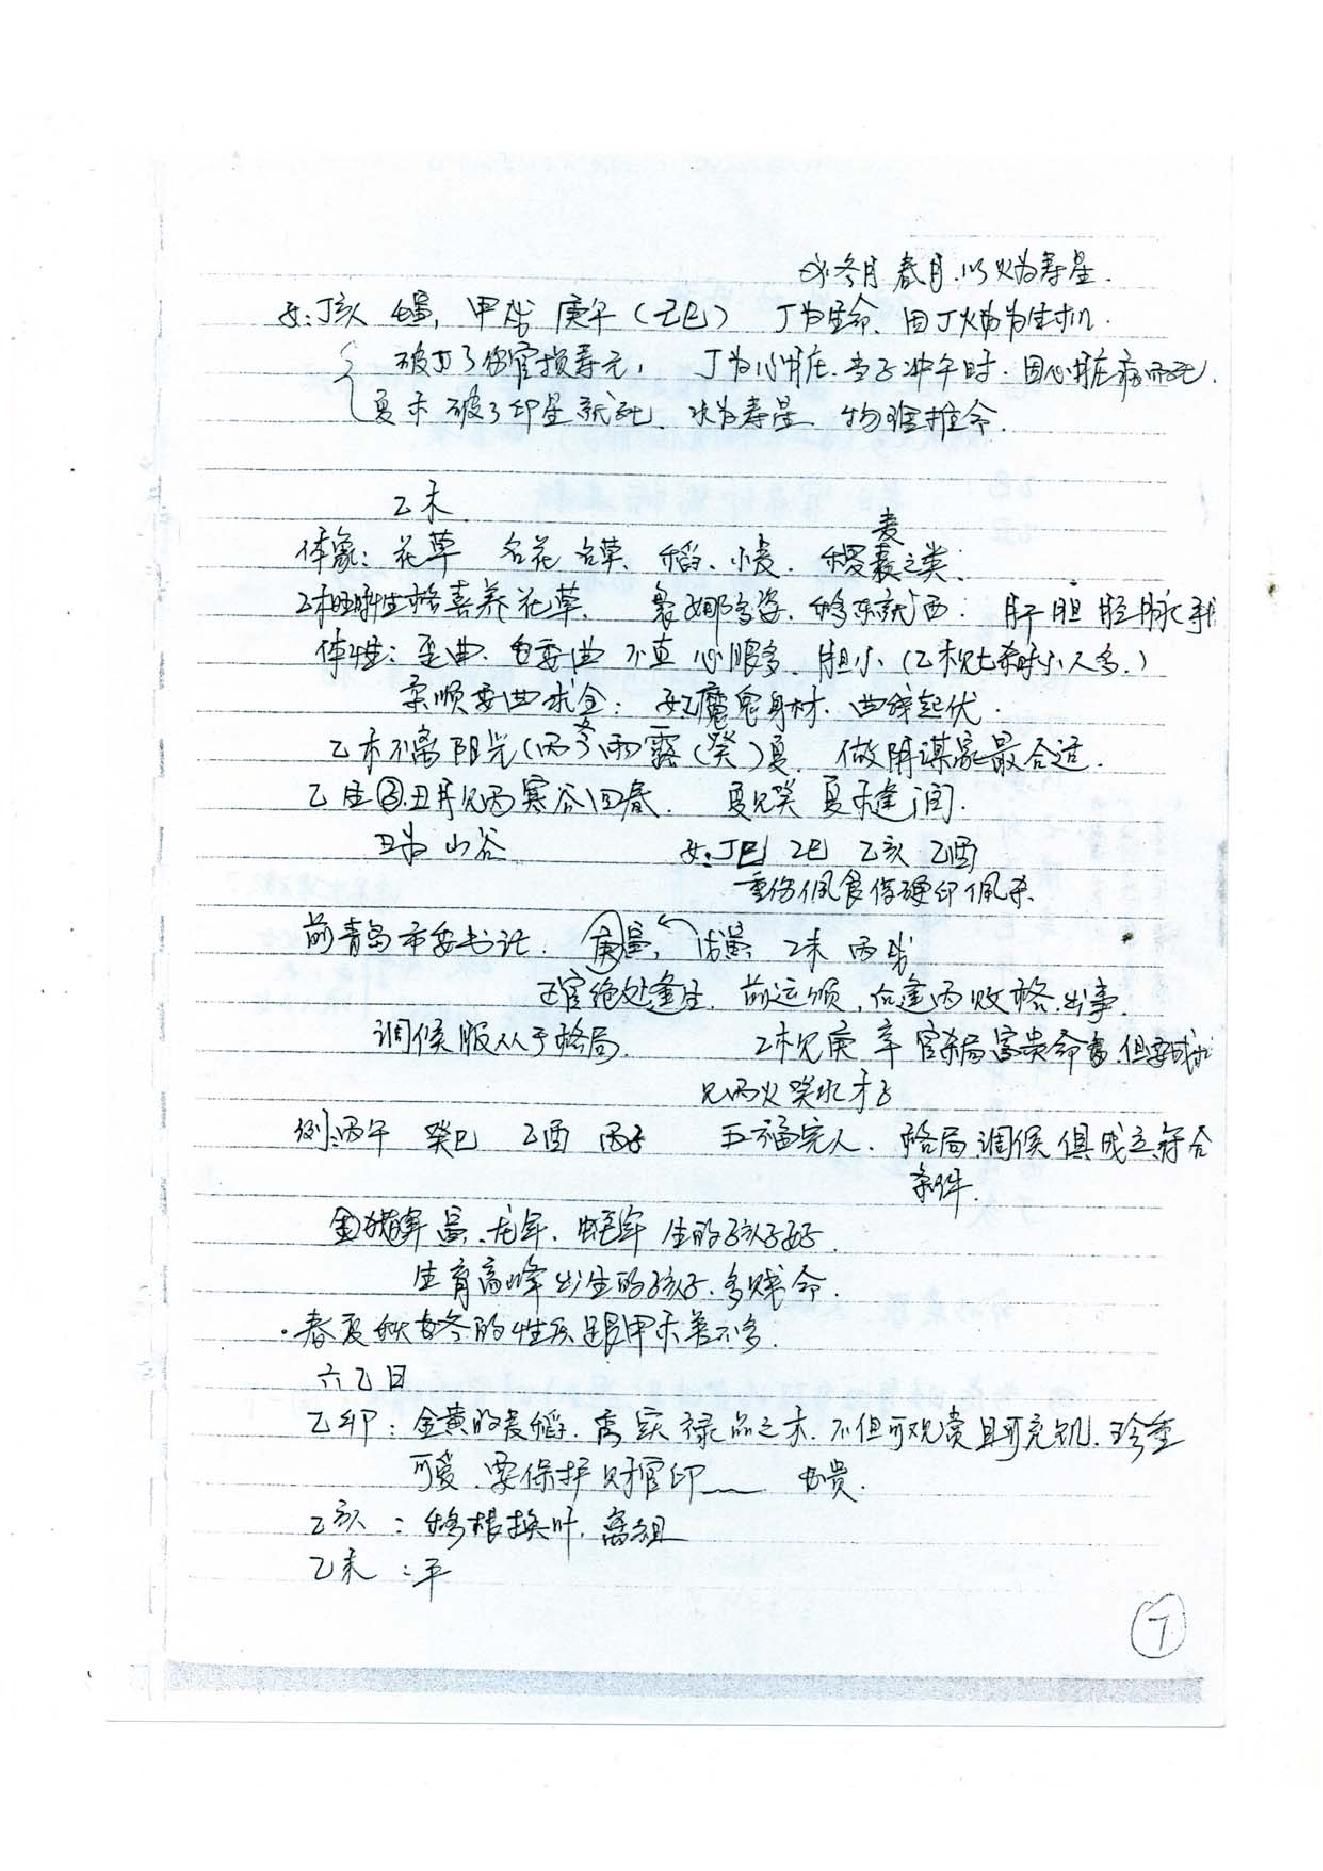 冬月 春月.以火为寿星.
女:丁亥 甲 庚午(己巳) 丁为生命. 因丁火为生机.
破丁了伤官损寿元, 丁为心脏.当子冲午时.因心脏病而死.
夏木破了印星就死. 水为寿星. 物理推命.
乙木
麦
体象: 花草 名花 名草. 稻. 小麦. 稷 之类.
乙木 喜养花草. 袅娜多姿. 移东就西: 肝 胆 经脉
体性: 歪曲. 委曲 不直 心眼多. 胆小(乙木见七杀时小人多.)
柔顺委曲求全: 女:魔鬼身材. 曲线起伏.
冬
乙木不离阳光(丙) 雨露(癸)夏. 做阴谋家最合适.
乙生 丑月见丙寒谷回春. 夏见癸 夏木逢润.
丑为山谷 女:丁巳 乙巳 乙亥 乙酉
重伤佩食 印佩杀.
前青岛市委书记. 庚寅, 戊寅 乙未 丙戌
正官绝处逢生. 前运顺, 后逢丙败格.出事.
调候服从于格局. 乙木见庚 辛 官杀局富贵命 .但要
见丙火癸水才
例:丙午 癸巳 乙酉 丙子 五福完人. 格局.调候 俱成立.符合
条件.
金猪年 .龙年. 蛇年 生的孩子好.
生育高峰出生的孩子.多贱命.
·春夏秋冬的性质跟甲木差不多.
六乙日
乙卯: 金黄的麦稻. 禄品之木.不但可观赏且可充饥.珍重
可爱.要保护 财官印 贵.
乙亥: 移根换叶.离祖
乙未: 平
7